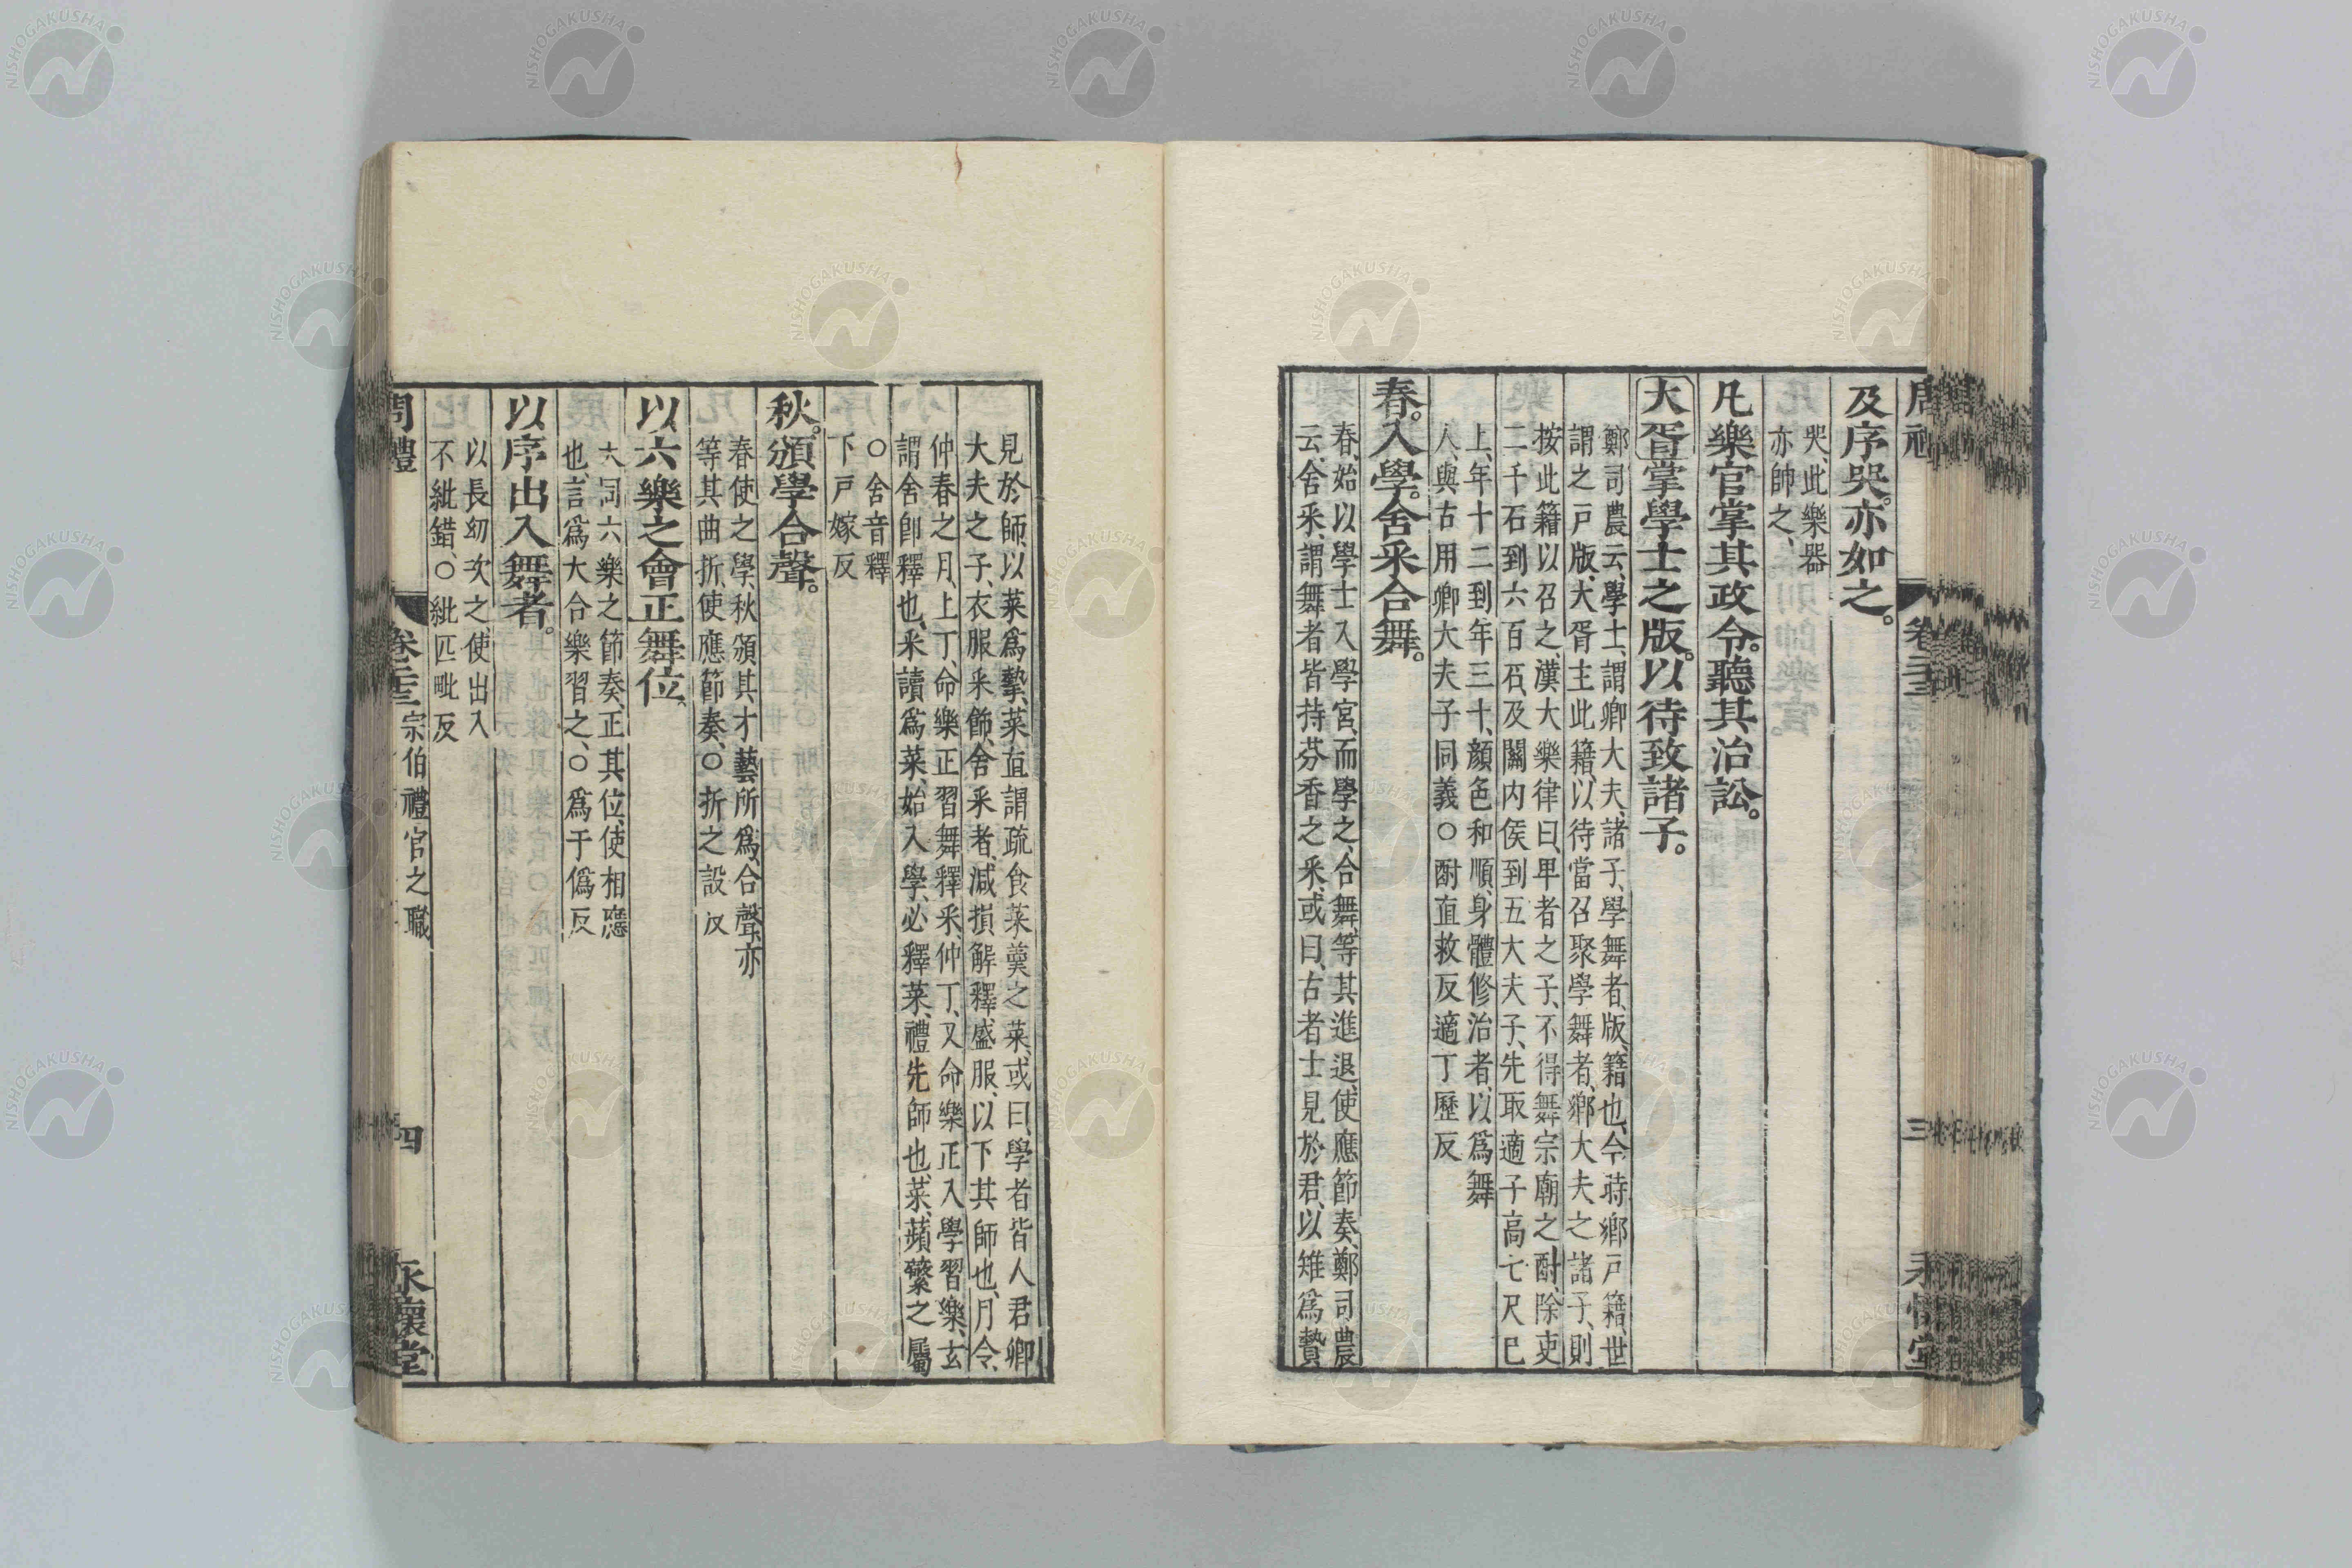 及序哭。亦如之。
哭、此樂器
亦帥之、
凡樂官掌其政令。聽其治訟。
大胥掌學士之版。以待致諸子。
鄭司農云、學士、謂卿大夫、諸子、學舞者、版、籍也、今時鄉戸籍、世
謂之戸版、大胥主此籍、以待當召聚學舞者、鄉大夫、之諸子、則
按此籍以召之、漢大樂律曰、卑者之子、不得舞宗廟之酎、除吏
二千石到六百石、及關内侯到五大夫子、先取適子高七尺巳
上、年十二到年三十、顔色和順、身體修治者、以爲舞
人、與古用卿大夫子同義○酎直救反適丁歷反
春。入學。舍采合舞。
春、始以學士入學宮、而學之、合舞、等其進退、使應節奏、鄭司農
云、舍采、謂舞者皆持芬香之采、或曰、古者士見於君、以雉爲贄
見於師、以菜爲摯、菜直謂疏食菜羹之菜、或曰、學者皆人君卿
大夫之子、衣服采飾、舍采者、減損解釋、盛服、以下其師也、月令、
仲春之月、上丁、命樂正習舞釋采、仲丁、又命樂正入學習樂、玄
謂舍卽釋也、采讀爲菜、始入學、必釋菜、禮先師也、菜、蘋蘩之屬
○舍音釋
下戸嫁反
秋。頒學合聲。
春使之學、秋頒其才藝所爲、合聲、亦
等其曲折、使應節奏、○折之設反
以六樂之會正舞位、
大同六樂之節奏、正其位、使相應
也、言爲大合樂習之、○爲于僞反
以序出入舞者。
以長幼次之使出入
不紕錯、○紕匹毗反
周禮 卷二十三 宗伯禮官之職 四 永懷堂
NISHOGAKUSHA